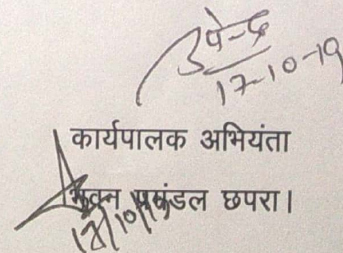 उपेन्द्र
17-10-19
कार्यपालक अभियंता
भवन प्रमंडल छपरा।
17/10/19